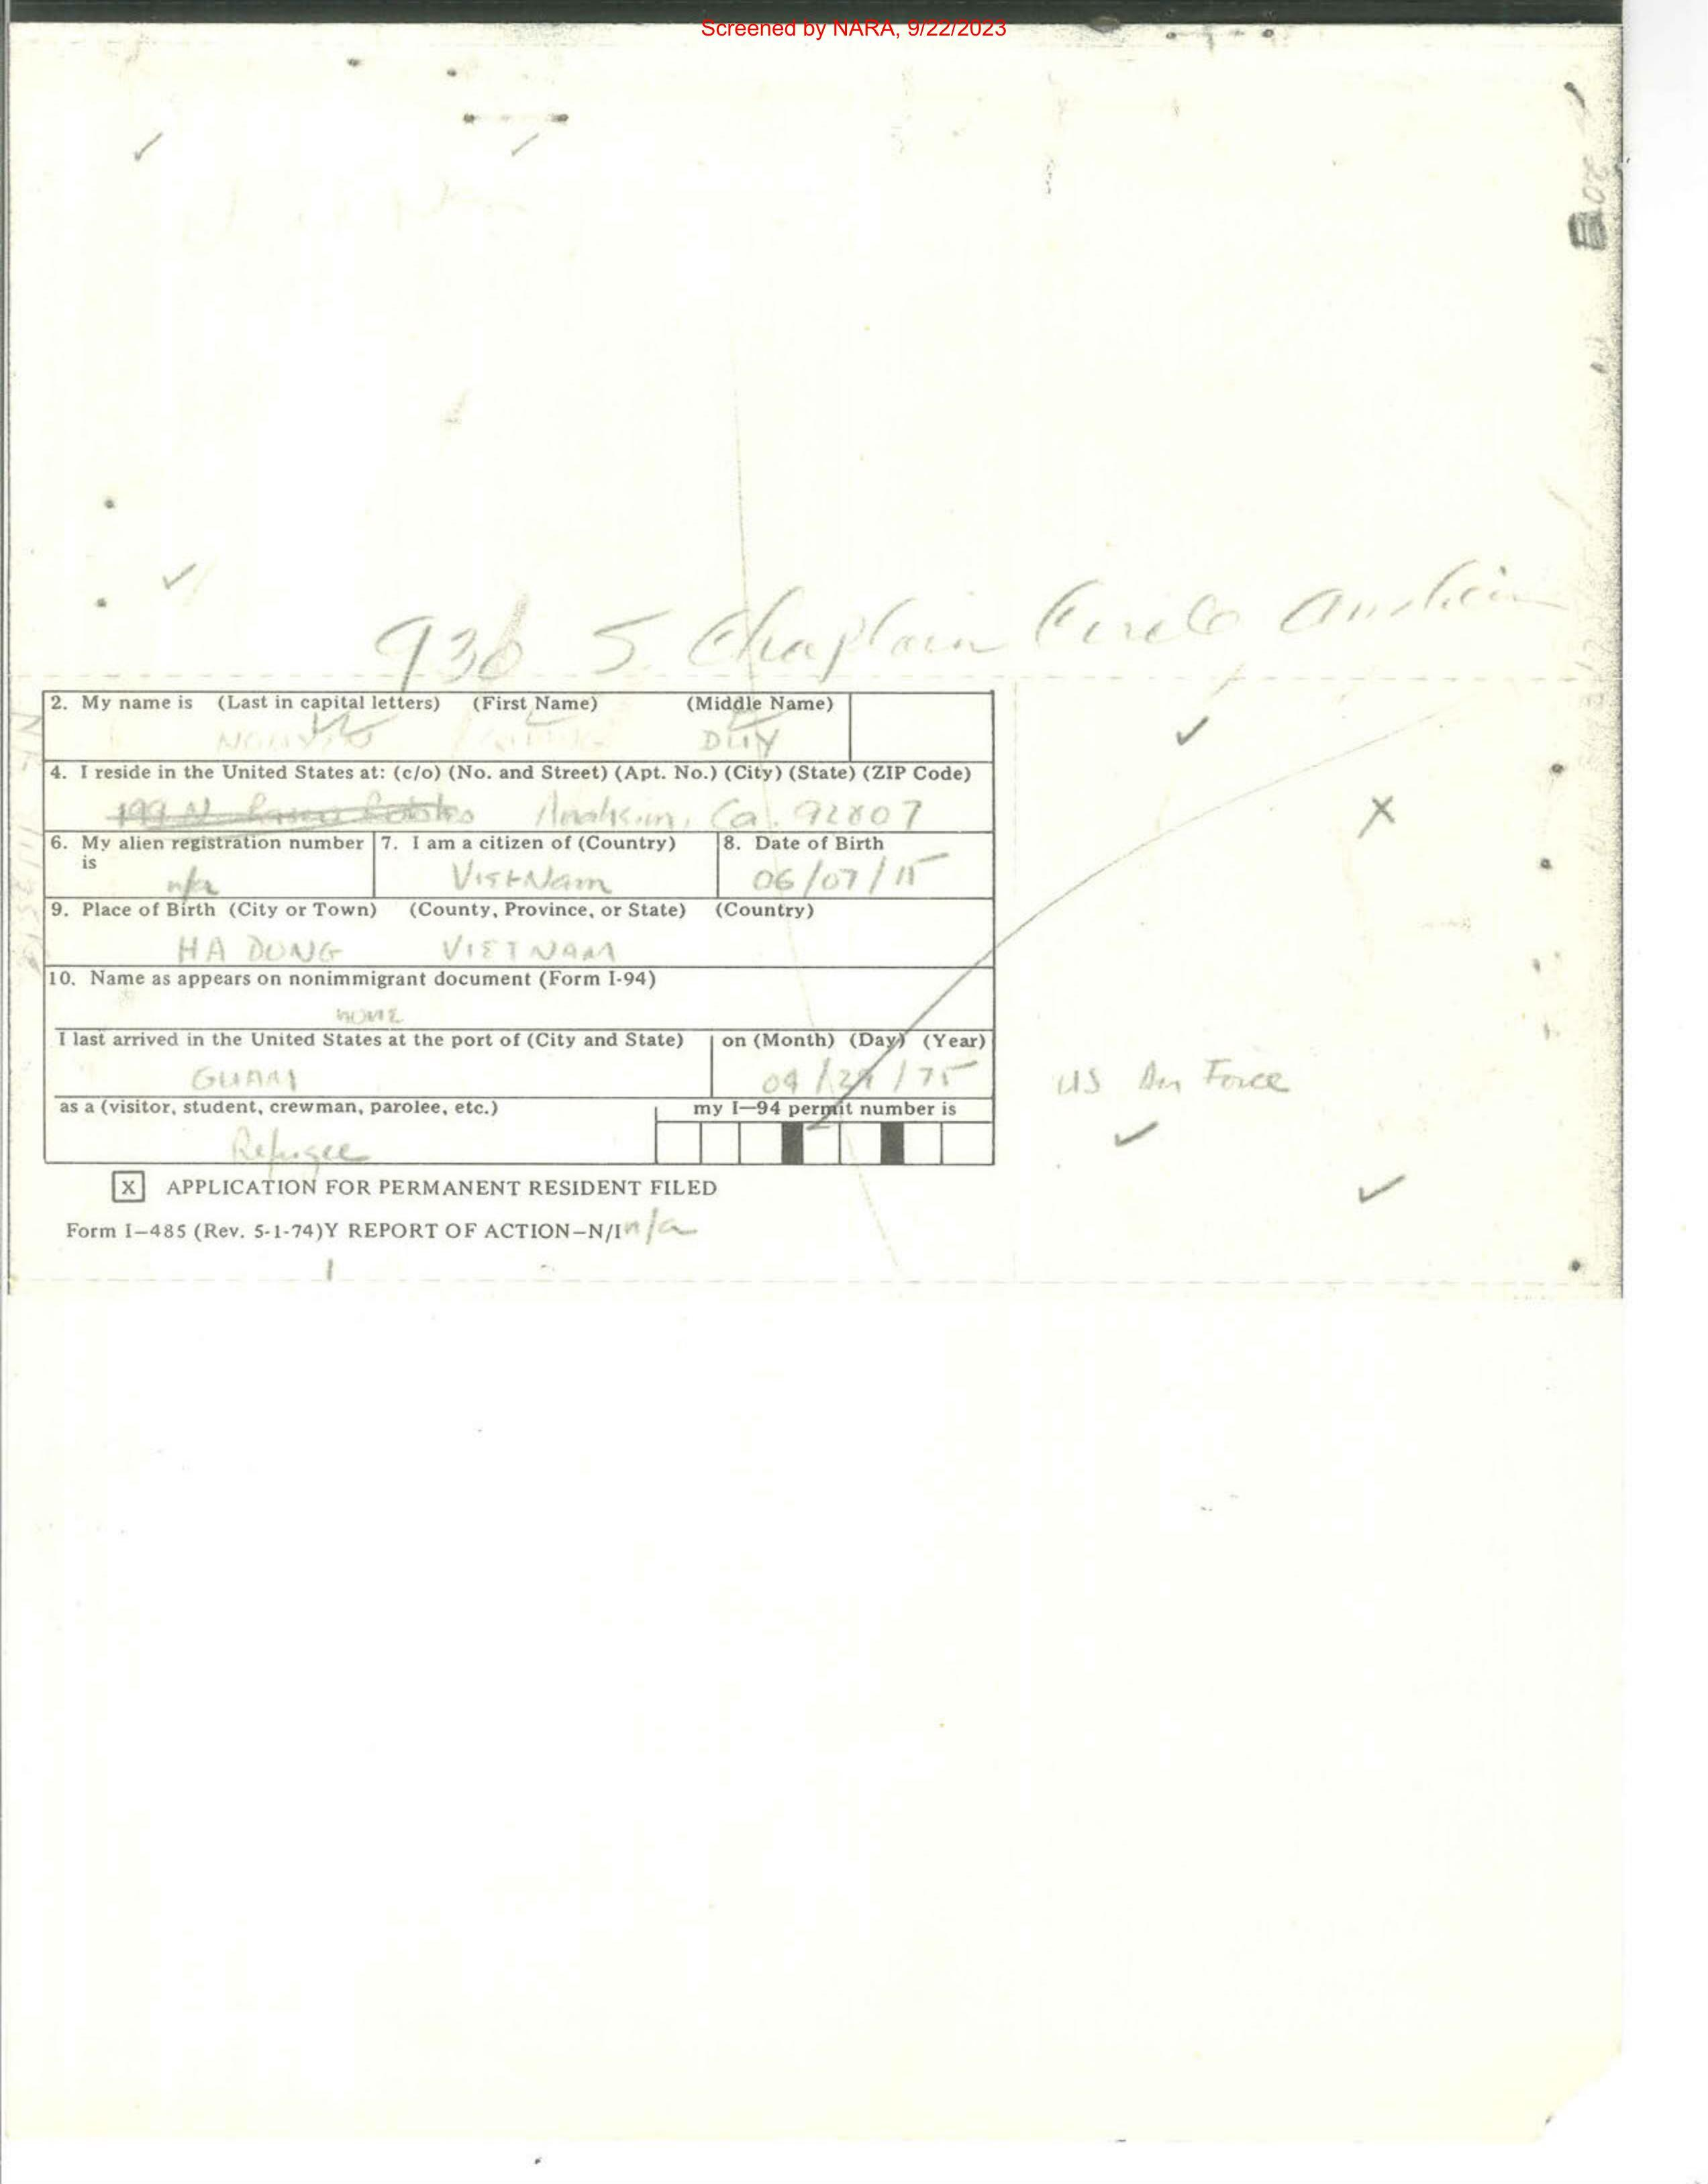 Screened by NARA, 9/22/2023
936 S. Chaplain Circle Anaheim
2. My name is (Last in capital letters) (First Name) (Middle Name)
DUY
4. I reside in the United States at: (c/o) (No. and Street) (Apt. No.) (City) (State) (ZIP Code)
Anaheim, Ca. 92807
6. My alien registration number is
n/a
7. I am a citizen of (Country)
VietNam
8. Date of Birth
06/07/15
9. Place of Birth (City or Town) (County, Province, or State) (Country)
HA DUNG VIETNAM
10. Name as appears on nonimmigrant document (Form I-94)
NONE
I last arrived in the United States at the port of (City and State)
GUAM
on (Month) (Day) (Year)
04/29/75
US Air Force
as a (visitor, student, crewman, parolee, etc.)
Refugee
my I-94 permit number is
X APPLICATION FOR PERMANENT RESIDENT FILED
Form I-485 (Rev. 5-1-74)Y REPORT OF ACTION-N/I n/a